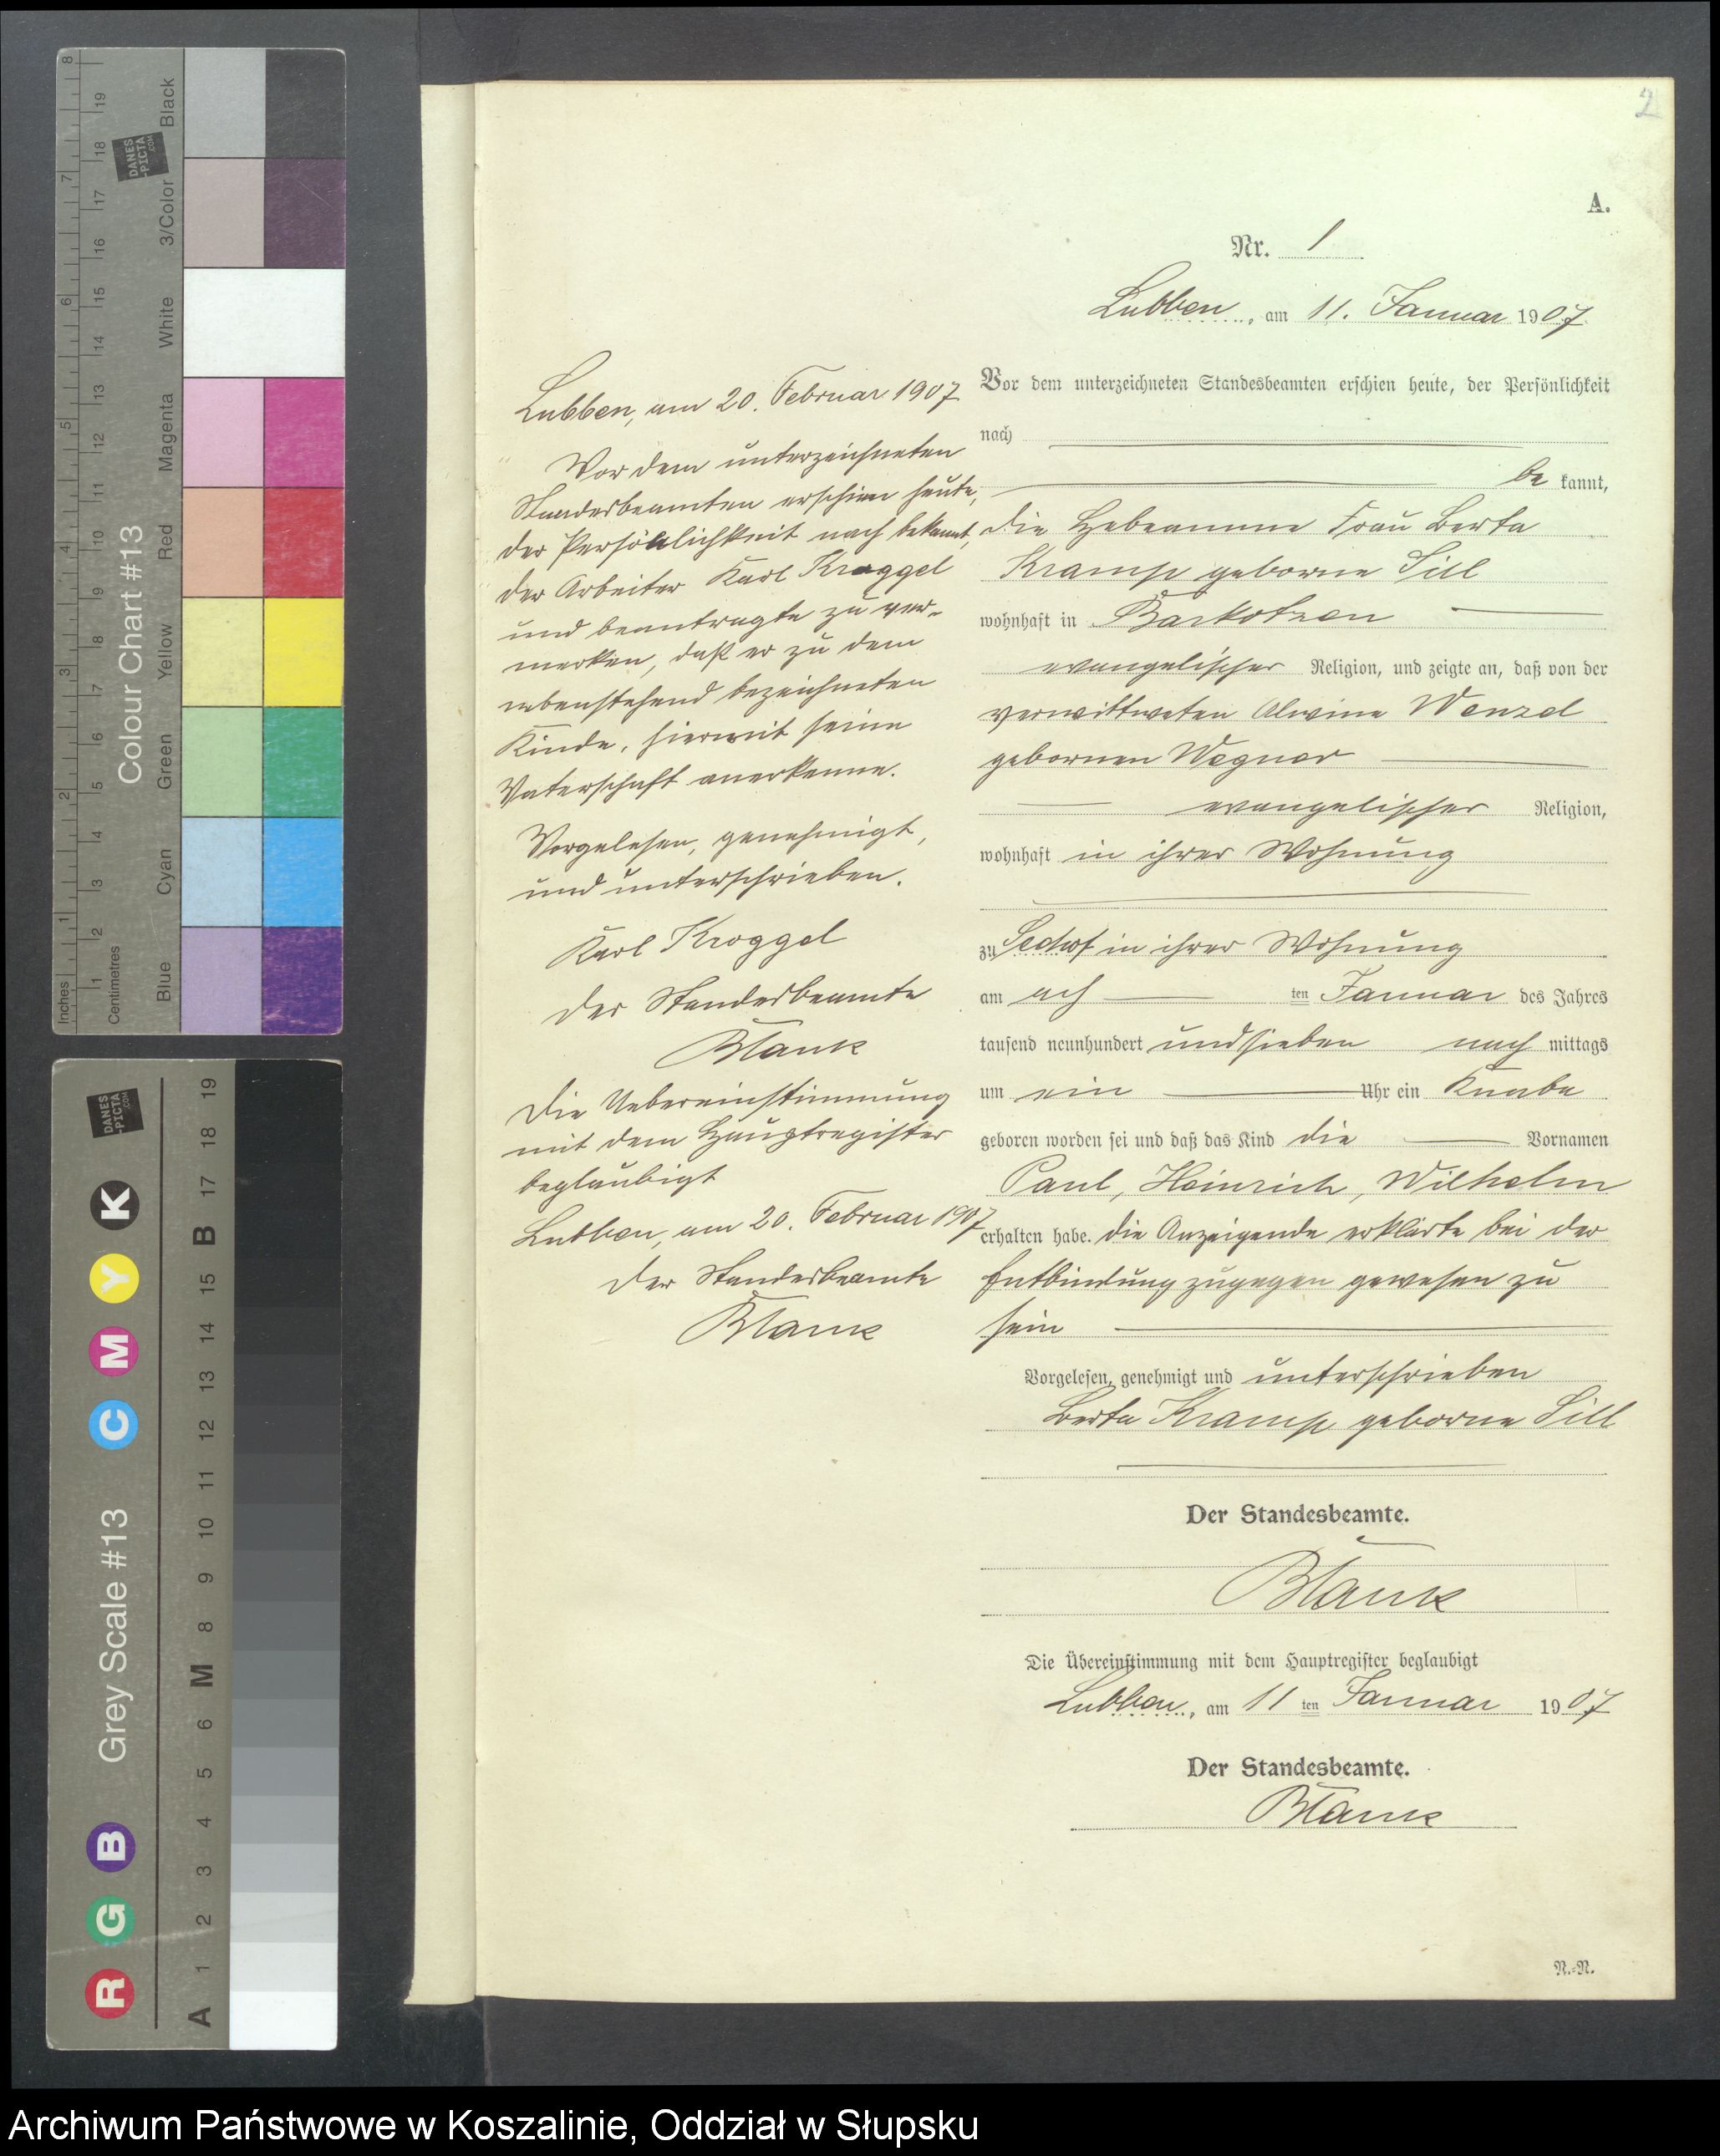 2
A.
Nr. 1
Lubben, am 11. Januar 1907
Vor dem unterzeichneten Standesbeamten erschien heute, der Persönlichkeit
nach
be kannt,
die Hebeamme Frau Berta
Kramp geborne Sill
wohnhaft in Barkotzen
evangelischer Religion, und zeigte an, daß von der
verwittweten Alwine Wenzel
gebornen Wegner
evangelischer Religion,
wohnhaft in ihrer Wohnung
zu in ihrer Wohnung
am ach ten Januar des Jahres
tausend neunhundert undsieben nach mittags
um ein Uhr ein Knabe
geboren worden sei und daß das Kind die Vornamen
Paul, Heinrich, Wilhelm
erhalten habe. Die Anzeigende erklärte bei der
Entbindung zugegen gewesen zu
sein
Vorgelesen, genehmigt und unterschrieben
Berta Kramp geborne Sill
Der Standesbeamte.
Blank
Die Übereinstimmung mit dem Hauptregister beglaubigt
Lubben, am 11 ten Januar 1907
Der Standesbeamte.
Blank
R.-R.
Lubben, am 20. Februar 1907
Vor dem unterzeichneten
Standesbeamten erschien heute,
der Persönlichkeit nach bekannt,
der Arbeiter Karl Kroggel
und beantragte zu ver-
merken, daß er zu dem
nebenstehend bezeichneten
Kinde, hiermit seine
Vaterschaft anerkenne.
Vorgelesen, genehmigt,
und unterschrieben.
Karl Kroggel
Der Standesbeamte
Blank
Die Uebereinstimmung
mit dem Hauptregister
beglaubigt
Lubben, am 20. Februar 1907
Der Standesbeamte
Blank
Colour Chart #13
Inches 1 2 3 4 5 6 7 8
Centimetres 1 2 3 4 5 6 7 8 9 10 11 12 13 14 15 16 17 18 19
Blue Cyan Green Yellow Red Magenta White 3/Color Black
DANES
-PICTA
.COM
Grey Scale #13
R G B C M Y K
A 1 2 3 4 5 6 M 8 9 10 11 12 13 14 15 B 17 18 19
DANES
-PICTA
.COM
Archiwum Państwowe w Koszalinie, Oddział w Słupsku